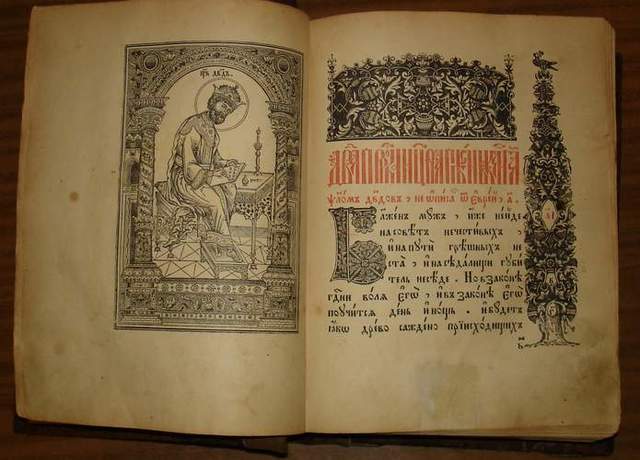 цр҃ь дв҃дъ.
ѱл҃ом дв҃довъ, не ѡписа ѿ еврей, а҃.
Блаженъ мужъ, иже нейде
на совѣтъ нечестивыхъ,
и на пути грѣшныхъ не
ста, и на сѣдалищи губи
тель неседе. Но взаконѣ
гд҃ни воля егѡ, и въ законѣ егѡ
поучится день и нощь. и будетъ
ꙗкѡ древо саждено при исходищихъ